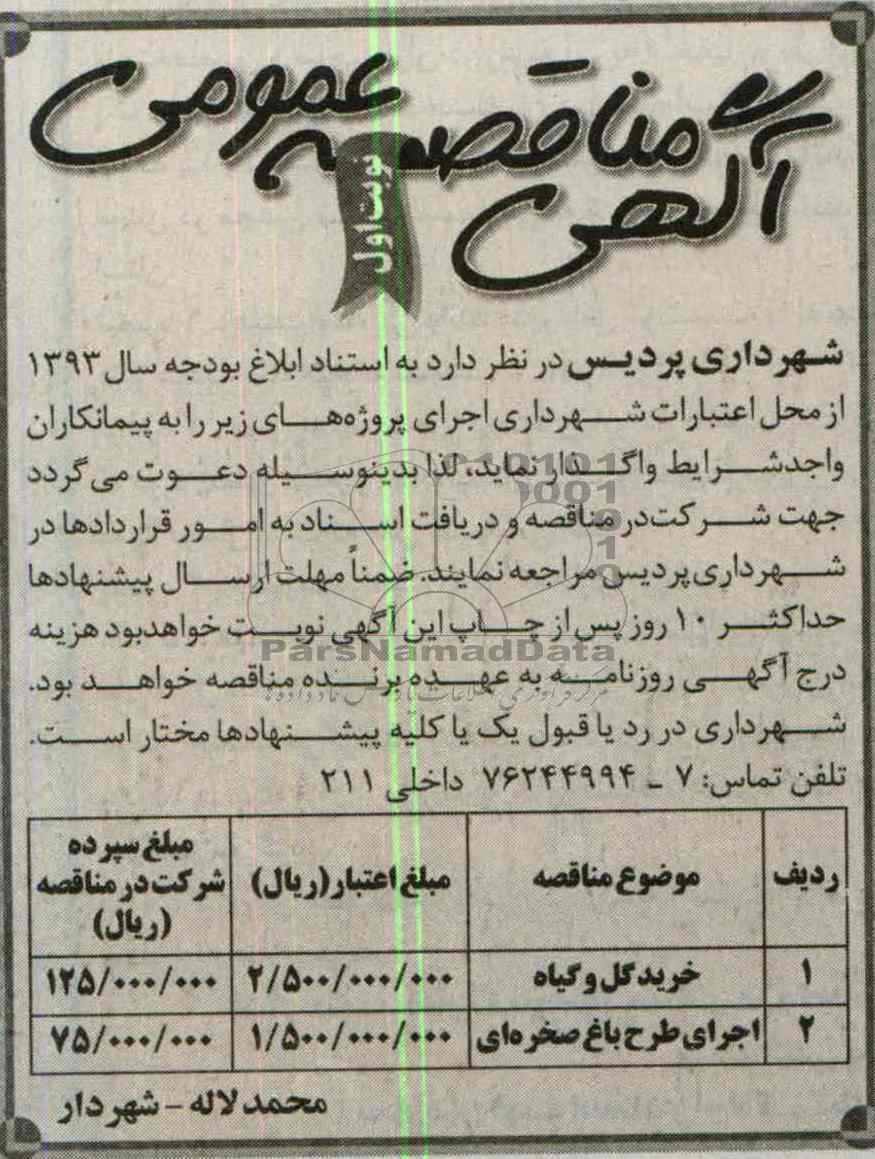 آگهی مناقصه عمومی
نوبت اول
شهرداری پردیس در نظر دارد به استناد ابلاغ بودجه سال ۱۳۹۳
از محل اعتبارات شهرداری اجرای پروژه‌های زیر را به پیمانکاران
واجدشرایط واگذار نماید، لذا بدینوسیله دعوت می گردد
جهت شرکت در مناقصه و دریافت اسناد به امور قراردادها در
شهرداری پردیس مراجعه نمایند. ضمناً مهلت ارسال پیشنهادها
حداکثر ۱۰ روز پس از چاپ این آگهی نوبت خواهدبود هزینه
درج آگهی روزنامه به عهده برنده مناقصه خواهد بود.
شهرداری در رد یا قبول یک یا کلیه پیشنهادها مختار است.
تلفن تماس: ۷ ـ ۷۶۲۴۴۹۹۴ داخلی ۲۱۱
ردیف موضوع مناقصه مبلغ اعتبار (ریال) مبلغ سپرده شرکت در مناقصه (ریال)
۱ خرید گل و گیاه ۲/۵۰۰/۰۰۰/۰۰۰ ۱۲۵/۰۰۰/۰۰۰
۲ اجرای طرح باغ صخره‌ای ۱/۵۰۰/۰۰۰/۰۰۰ ۷۵/۰۰۰/۰۰۰
محمد لاله - شهردار
ParsNamadData